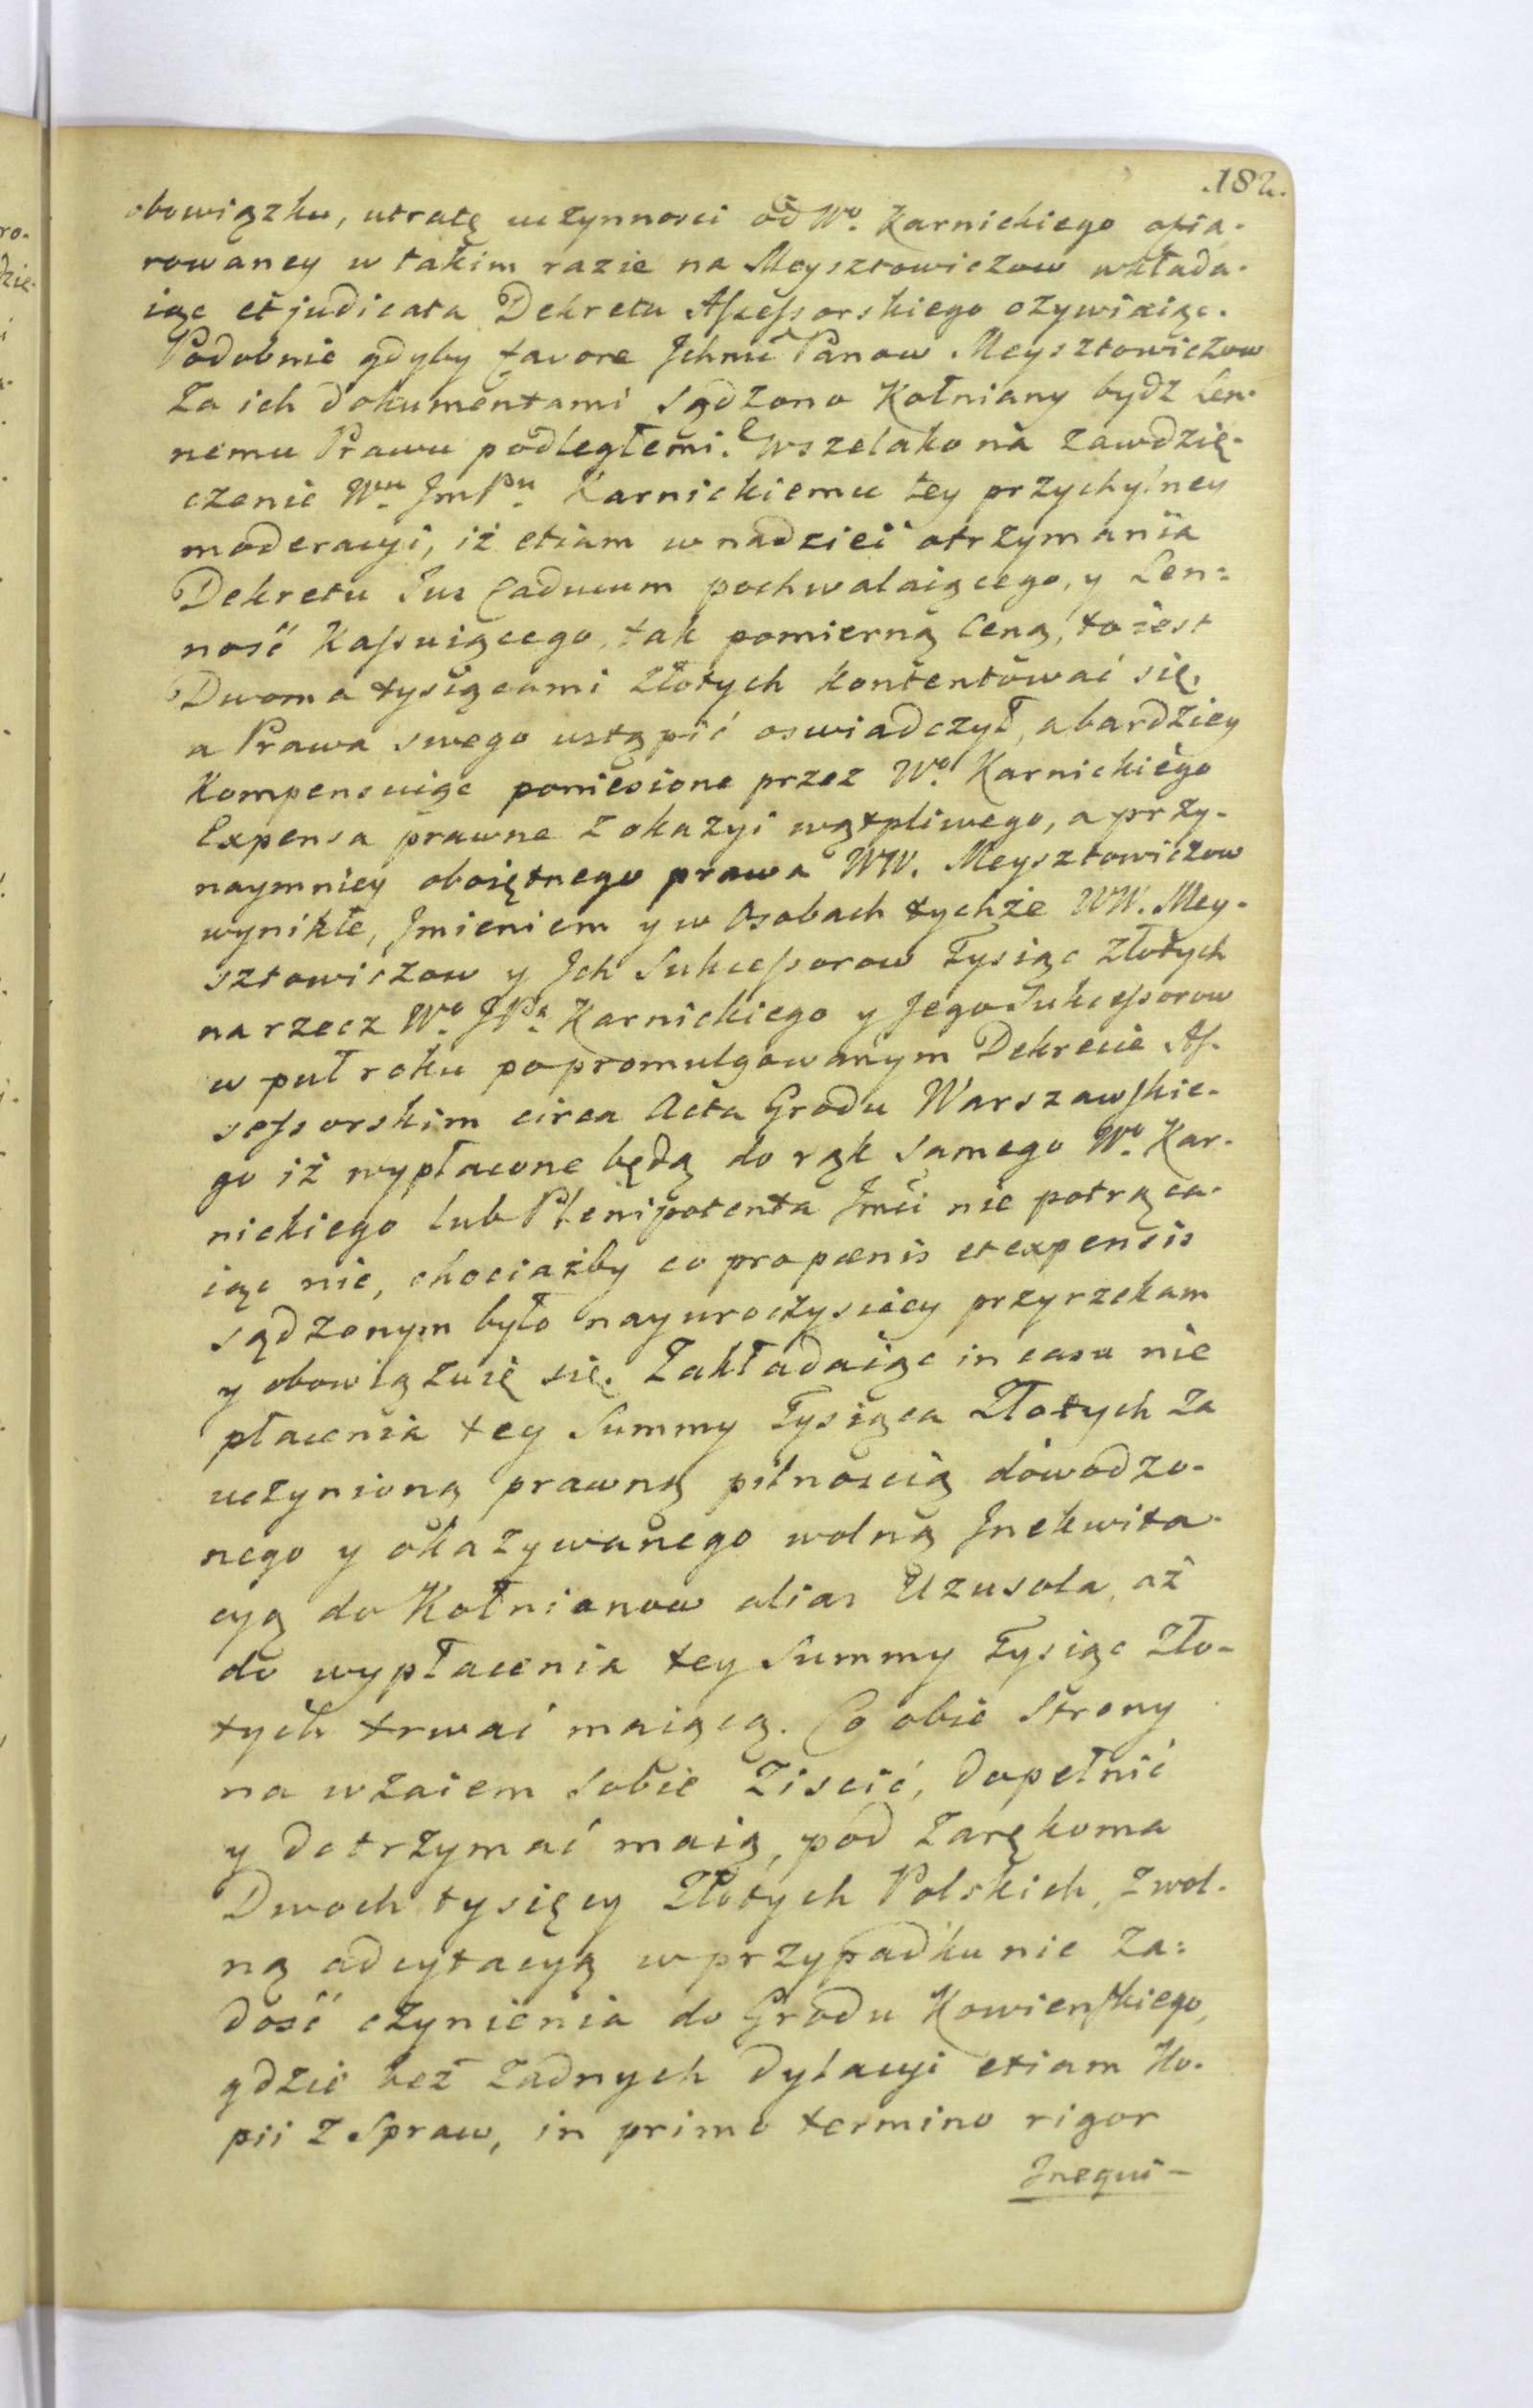 182.
obowiązku, utratę uczynnosci od Wo. Karnickiego ofia-
rowaney w takim razie na Meysztowiczow wkłada-
iąc et judicata Dekretu Assessorskiego ozywiaiąc.
Podobnie gdyby favore Jchmć Panow Meysztowiczow
za ich dokumentami sądzono Kołniany bydz Len-
nemu Prawu podległemi. Wszelako na zawdzię-
czenie Wu. JmPu. Karnickiemu tey przychylney
moderacyi, iż etiam w nadziei otrzymania
Dekretu Jus Caducum pochwalaiącego, y Len=
ność Kassuiącego, tak pomierną Ceną, to iest
Dwoma tysiącami złotych kontentować się,
a Prawa swego ustąpić oswiadczył, a bardziey
Kompensuiąc poniesione przez Wo. Karnickiego
Expensa prawne z okazyi wątpliwego, a przy-
naymniey oboiętnego prawa WW. Meysztowiczow
wynikłe, Jmieniem y w Osobach tychże WW. Mey-
sztowiczow y Jch Sukcessorow Tysiąc złotych
na rzecz Wo JPa. Karnickiego y Jego Sukcessorow
w puł roku po promulgowanym Dekrecie As-
sessorskim circa Acta Grodu Warszawskie-
go iż wypłacone będą do rąk samego Wo. Kar-
nickiego lub Plenipotenta Jmći nie potrąca-
iąc nic, chociażby co pro pœnis et expensis
sądzonym było nayuroczysciey przyrzekam
y obowiązuię się. Zakładaiąc in casu nie
płacenia tey Summy Tysiąca Złotych za
uczynioną prawną pilnoscią dowodzo-
nego y okazywanego wolną Jnekwita-
cyą do Kołnianow alias Uzusola, aż
do wypłacenia tey Summy Tysiąc Zło-
tych trwać maiącą. Co obie Strony
na wzaiem sobie Ziscić, dopełnić
y dotrzymać maią, pod zarękoma
Dwoch tysięcy Złotych Polskich, z wol-
ną adcytacyą w przypadku nie za=
dość czynienia do Grodu Kowienskiego,
gdzie bez żadnych dylacyi etiam Ko-
pii z Spraw, in primo termino rigor
Jnequi-